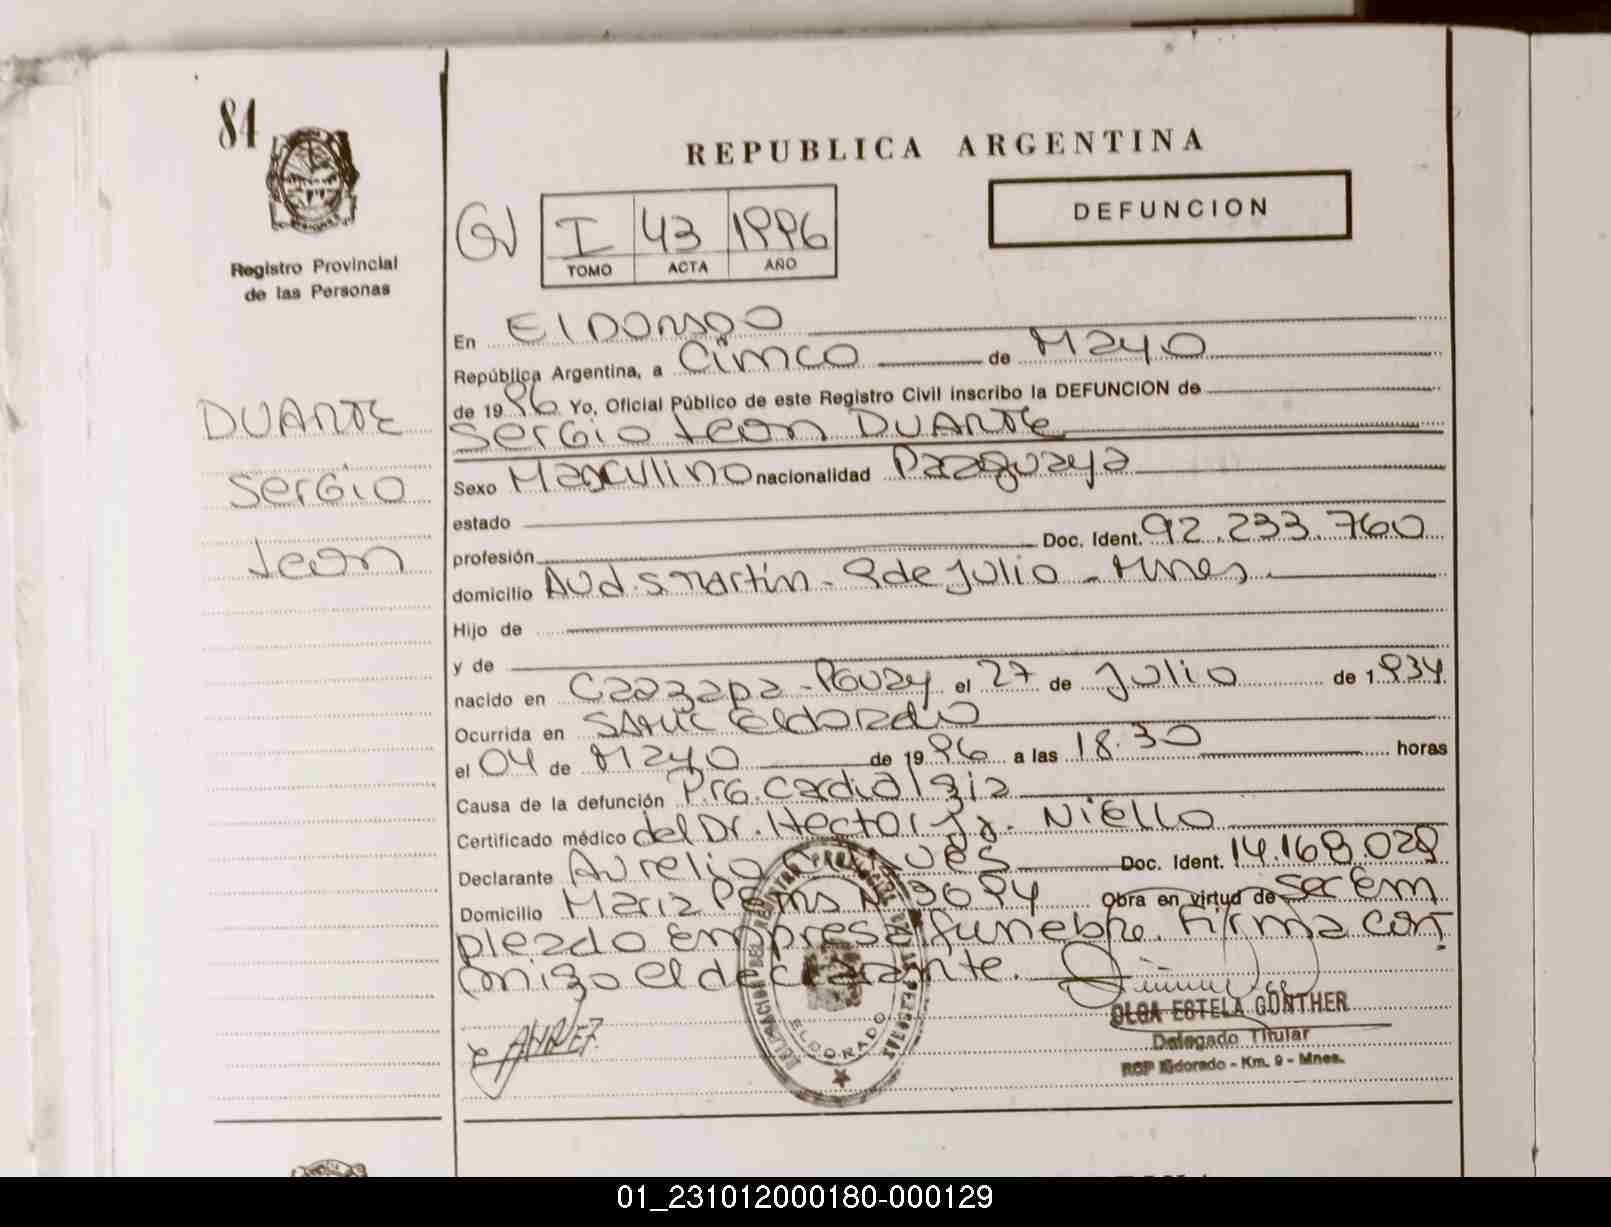 84
REPUBLICA ARGENTINA
DEFUNCION
I 43 1996
TOMO ACTA AÑO
Registro Provincial
de las Personas
DUARTE
Sergio
Leon
En ElDORADO
República Argentina, a Cinco de Mayo
de 1996 Yo, Oficial Público de este Registro Civil inscribo la DEFUNCION de
Sergio Leon DUARTE
Sexo Masculino nacionalidad Paraguaya
estado
profesión Doc. Ident. 92.233.760
domicilio Avd. S martin - 9 de Julio - Mnes
Hijo de
y de
nacido en Caazapa - Pguay el 27 de Julio de 1934
Ocurrida en Eldorado
el 04 de Mayo de 1996 a las 18.30 horas
Causa de la defunción
Certificado médico del Dr. Hector J. Niello
Declarante Aurelio Doc. Ident.
Domicilio Maria Obra en virtud de ser em
pleado empresa funebre. Firma con
migo el declarante.
ELDORADO
OLGA ESTELA GÜNTHER
Delegado Titular
RCP Eldorado - Km. 9 - Mnes.
01_231012000180-000129